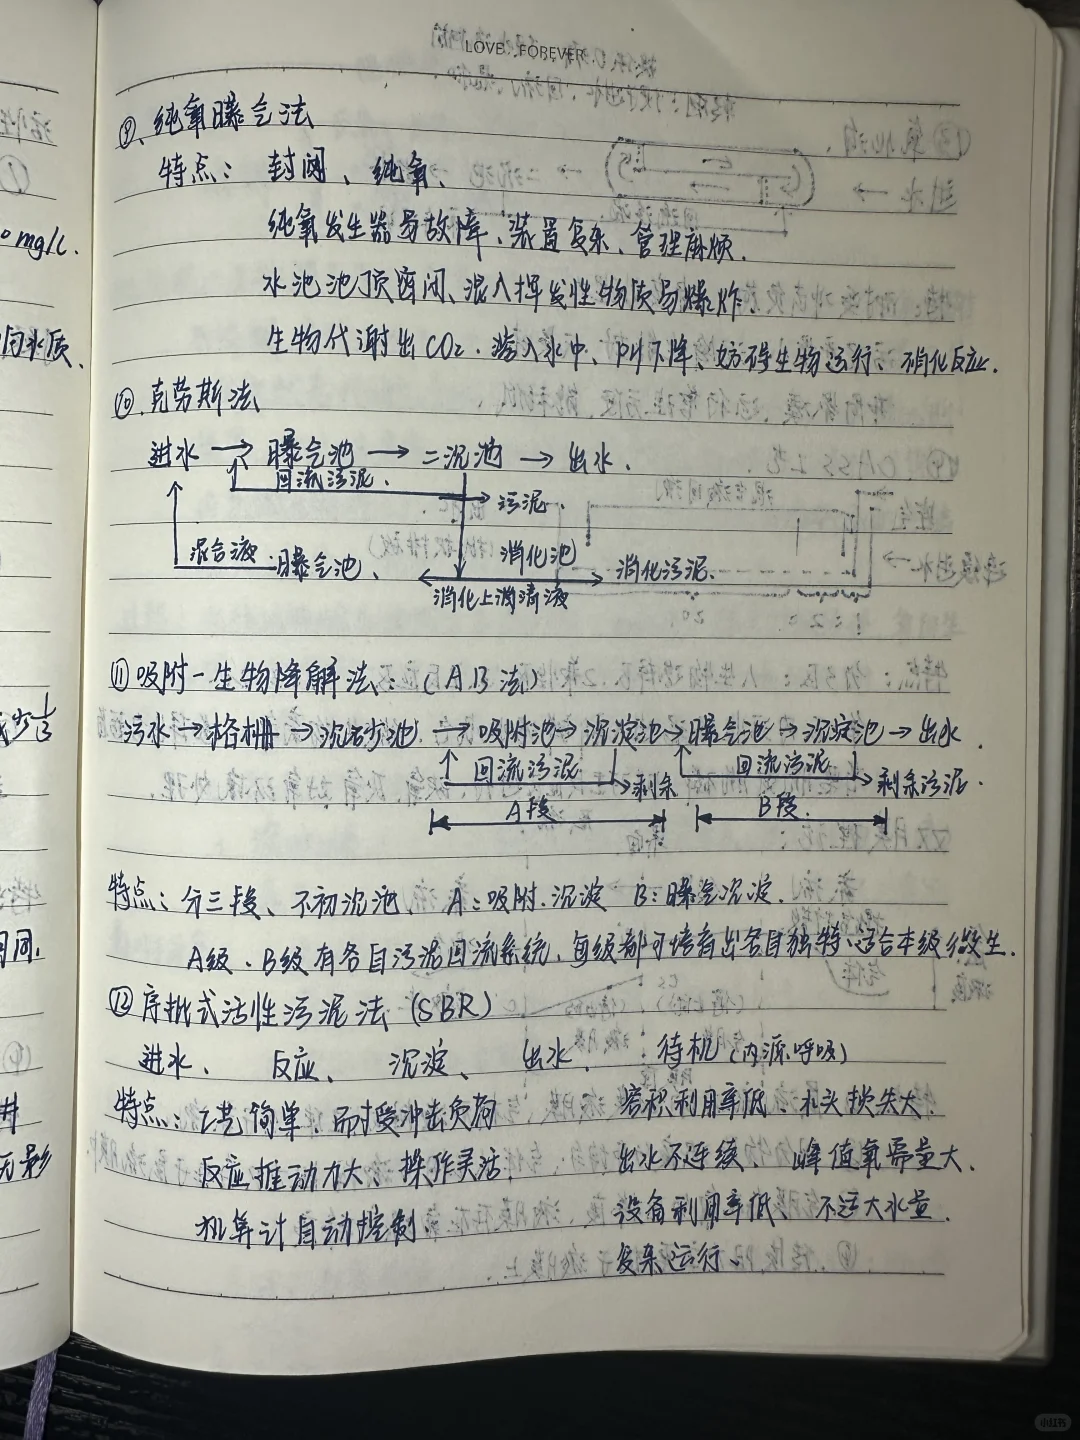 LOVE FOREVER
⑨、纯氧曝气法
特点： 封闭、纯氧、
纯氧发生器易故障、装置复杂、管理麻烦.
水池池顶密闭、混入挥发性物质易爆炸
生物代谢出CO₂.溶入水中、PH下降、妨碍生物运行、硝化反应.
⑩、克劳斯法
进水 → 曝气池 → 二沉池 → 出水.
回流污泥. 污泥.
混合液 曝气池、 消化池 消化污泥.
消化上清液
⑪ 吸附-生物降解法：（A.B法）
污水 → 格栅 → 沉砂池. → 吸附池 → 沉淀池 → 曝气池 → 沉淀池 → 出水.
回流污泥 剩余 回流污泥 剩余污泥.
A段 B段.
特点：分三段、不初沉池、 A：吸附.沉淀 B：曝气沉淀.
A级、B级有各自污泥回流系统，每级都可培育出各自独特、适合本级微生.
⑫ 序批式活性污泥法（SBR）
进水、 反应、 沉淀、 出水、 待机（内源呼吸）
特点：工艺简单.耐受冲击负荷 容积利用率低、水头损失大.
反应推动力大、操作灵活. 出水不连续、 峰值氧需量大.
机算计自动控制 设备利用率低、不适大水量.
复杂运行、
0mg/L.
同水质、
减少1/3
小红书